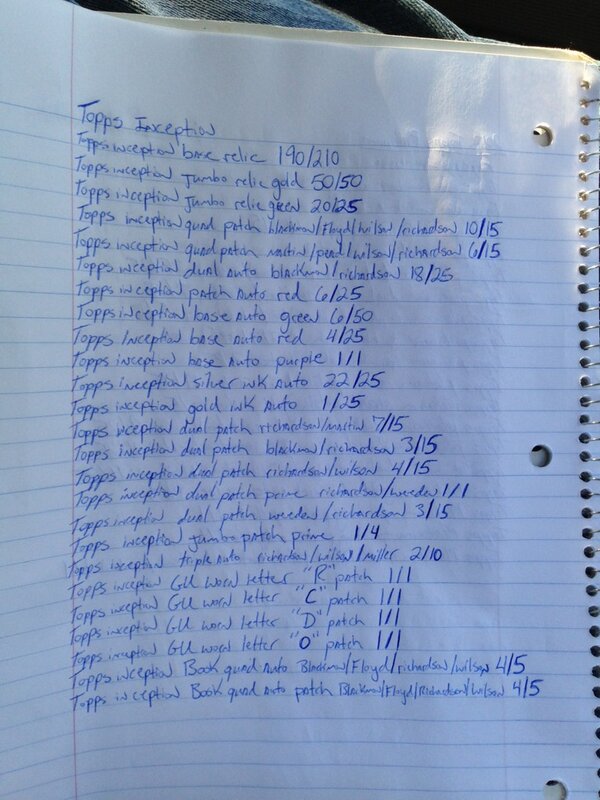 Topps Inception
Topps inception base relic 190/210
Topps inception Jumbo relic gold 50/50
Topps inception Jumbo relic green 20/25
Topps inception quad patch blackmon/Floyd/wilson/richardson 10/15
Topps inception quad patch martin/pead/wilson/richardson 6/15
Topps inception dual Auto blackmon/richardson 18/25
Topps inception patch Auto red 6/25
Topps inception base Auto green 6/50
Topps Inception base Auto red 4/25
Topps inception base Auto purple 1/1
Topps inception silver ink Auto 22/25
Topps inception gold ink Auto 1/25
Topps inception dual patch richardson/martin 7/15
Topps inception dual patch blackmon/richardson 3/15
Topps inception dual patch richardson/wilson 4/15
Topps inception dual patch prime richardson/weeden 1/1
Topps inception dual patch weeden/richardson 3/15
Topps inception Jumbo patch prime 1/4
Topps inception triple Auto richardson/wilson/miller 2/10
Topps inception GU worn letter "R" patch 1/1
Topps inception GU worn letter "C" patch 1/1
Topps inception GU worn letter "D" patch 1/1
Topps inception GU worn letter "O" patch 1/1
Topps inception Book quad Auto Blackmon/Floyd/richardson/wilson 4/5
Topps inception Book quad Auto patch Blackmon/Floyd/Richardson/Wilson 4/5